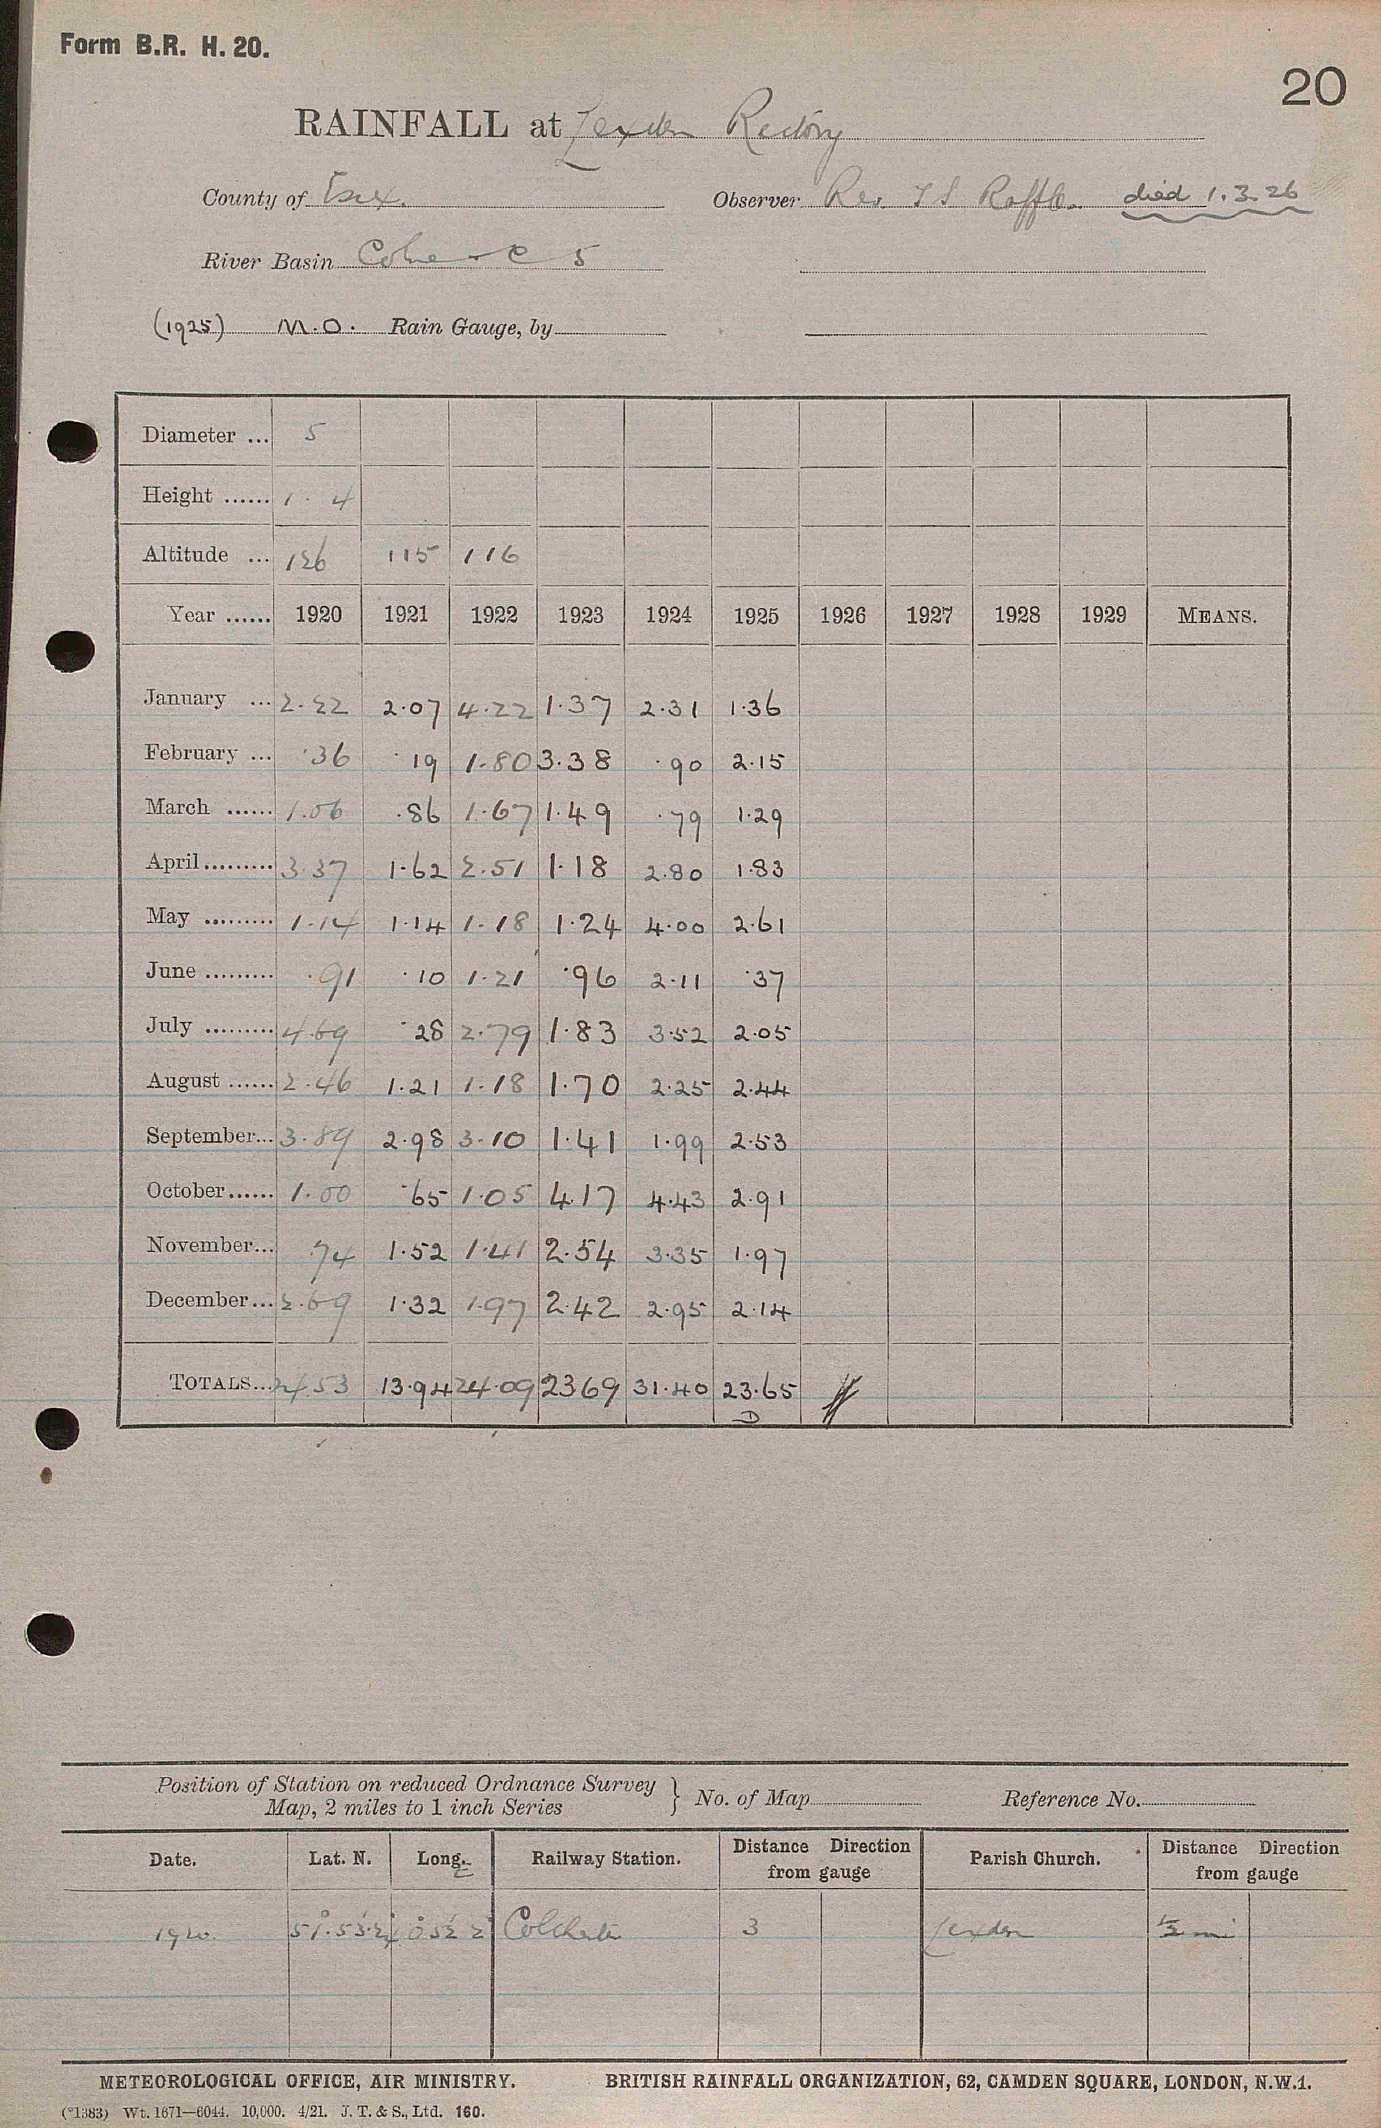 Form B.R. H. 20.
20
RAINFALL at Lexden Rectory
County of Essex. Observer Rev. T S Raffles died 1.3.26
River Basin Colne - C 5
(1925) M.O. Rain Gauge, by
Diameter ... 5
Height ...... 1. 4
Altitude ... 126 115 116
Year ...... 1920 1921 1922 1923 1924 1925 1926 1927 1928 1929 MEANS.
January ... 2.22 2.07 4.22 1.37 2.31 1.36
February ... .36 .19 1.80 3.38 .90 2.15
March ...... 1.06 .86 1.67 1.49 .79 1.29
April ......... 3.37 1.62 2.51 1.18 2.80 1.83
May ......... 1.14 1.14 1.18 1.24 4.00 2.61
June ......... .91 .10 1.21 .96 2.11 .37
July ......... 4.69 .28 2.79 1.83 3.52 2.05
August ...... 2.46 1.21 1.18 1.70 2.25 2.44
September... 3.89 2.98 3.10 1.41 1.99 2.53
October...... 1.00 .65 1.05 4.17 4.43 2.91
November... .74 1.52 1.41 2.54 3.35 1.97
December... 2.69 1.32 1.97 2.42 2.95 2.14
TOTALS... 24.53 13.94 24.09 23 69 31.40 23.65
D
Position of Station on reduced Ordnance Survey
Map, 2 miles to 1 inch Series } No. of Map Reference No.
Date. Lat. N. Long. E Railway Station. Distance Direction from gauge Parish Church. Distance Direction from gauge
1920. Colchester 3 Lexden ½ mi
METEOROLOGICAL OFFICE, AIR MINISTRY. BRITISH RAINFALL ORGANIZATION, 62, CAMDEN SQUARE, LONDON, N.W.1.
(*1383) Wt. 1671—6044. 10,000. 4/21. J. T. & S., Ltd. 160.